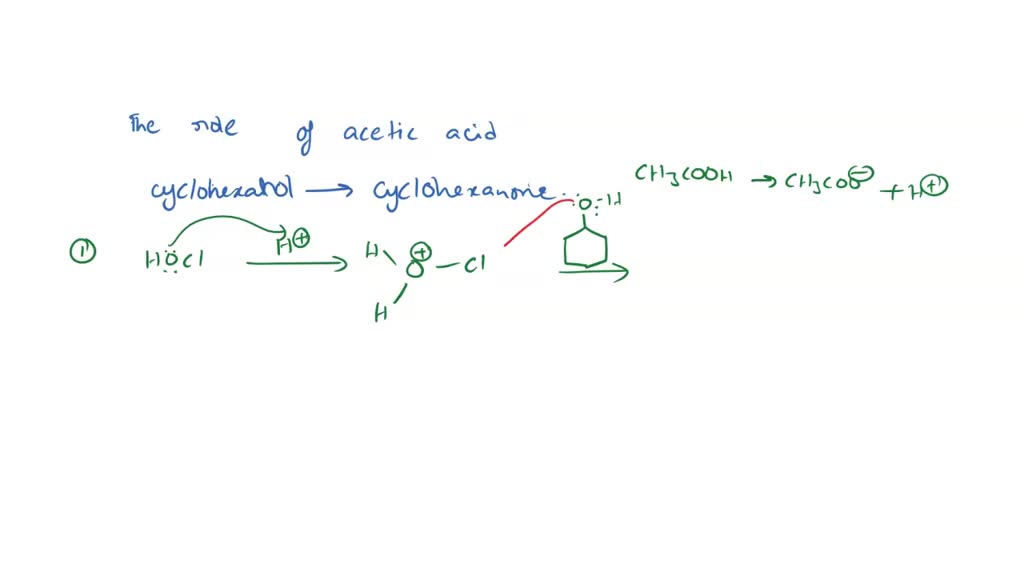 The role of acetic acid
cyclohexanol → cyclohexanone
CH3COOH → CH3COO⊖ + H⊕
O-H
① HOCl H⊕ → H O⊕ - Cl →
H